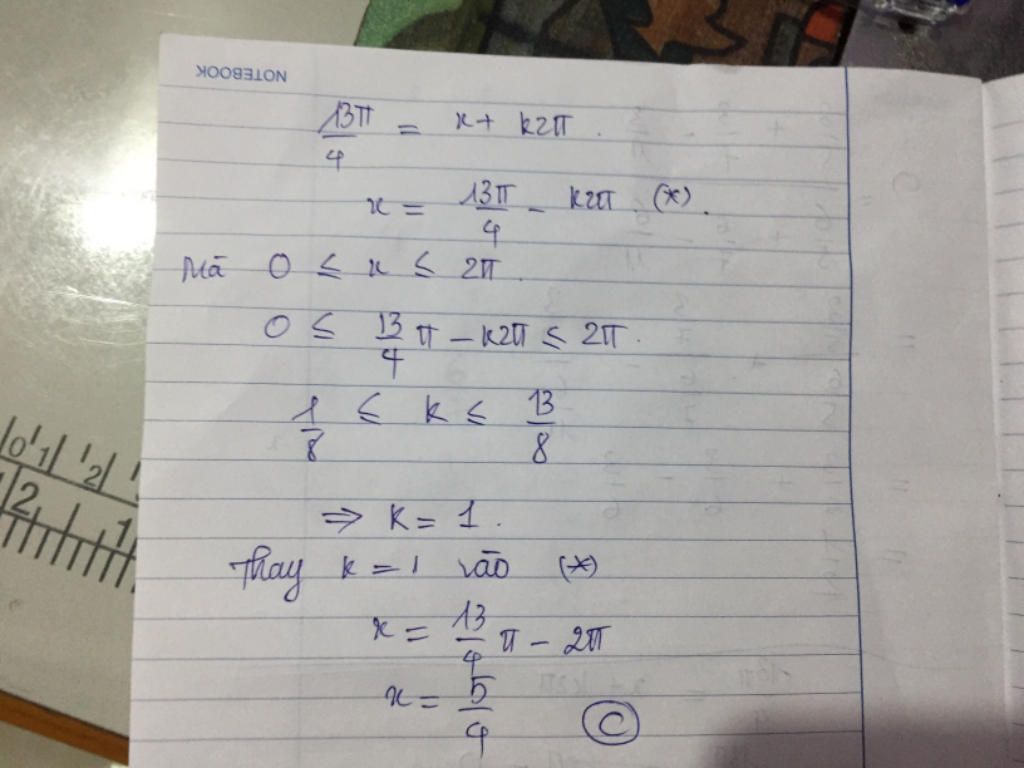 NOTEBOOK
13π/4 = x + k2π.
x = 13π/4 - k2π (*).
Mà 0 ≤ x ≤ 2π.
0 ≤ 13/4 π - k2π ≤ 2π.
1/8 ≤ k ≤ 13/8
⇒ K = 1.
Thay k = 1 vào (*)
x = 13/4 π - 2π
x = 5/4
C
0 1 2
2 1